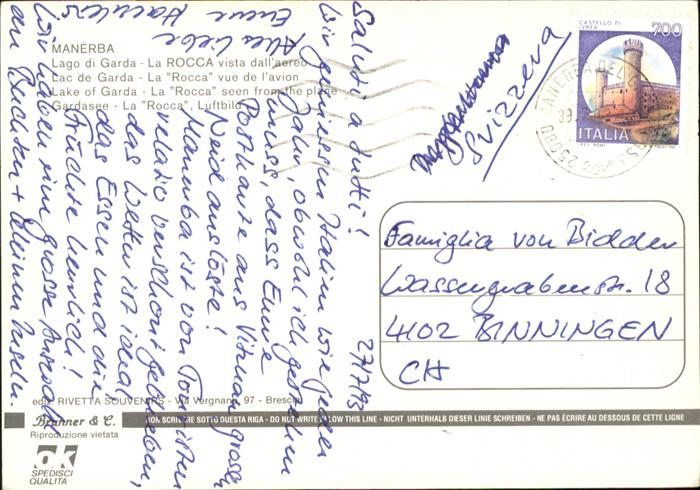 MANERBA
Lago di Garda - La ROCCA vista dall'aereo
Lac de Garda - La "Rocca" vue de l'avion
Lake of Garda - La "Rocca" seen from the plane
Gardasee - La "Rocca", Luftbild
CASTELLO DI
IVREA
700
ITALIA
MANERBA DEL
25080
Svizzera
Saluti a tutti!
Wir geniessen Italien wie jedes
Jahr, obwohl ich gestehen
muss, dass Eure
Postkarte aus
Neid auslöste!
Manerba ist von Touristen
relativ verschont geblieben,
das Wetter ist ideal
das Essen und die
Früchte herrlich!
Wir haben eine grosse Auswahl
an Buchten +
Alles Liebe
Eure
27/7/93
Famiglia von Bidder
Wassergrabenstr. 18
4102 BINNINGEN
CH
ediz. RIVETTA SOUVENIRS - Via Vergnano, 97 - Brescia
Brunner & C.
NON SCRIVERE SOTTO QUESTA RIGA - DO NOT WRITE BELOW THIS LINE - NICHT UNTERHALB DIESER LINIE SCHREIBEN - NE PAS ÉCRIRE AU DESSOUS DE CETTE LIGNE
Riproduzione vietata
ok
SPEDISCI
QUALITÀ